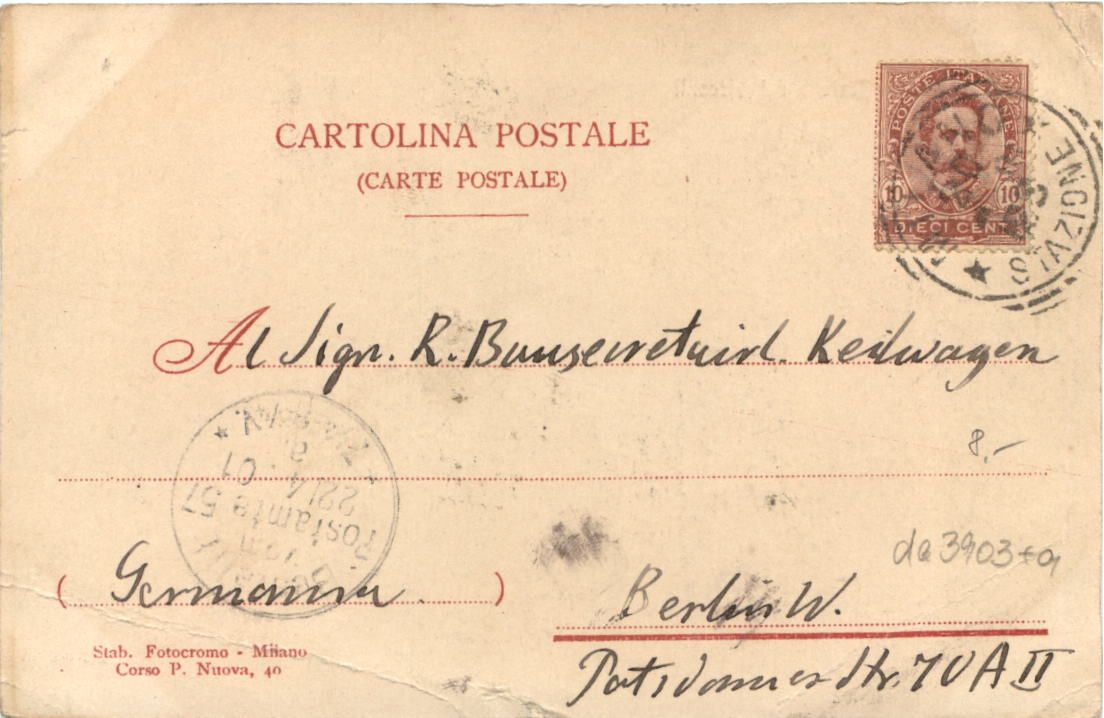 CARTOLINA POSTALE
(CARTE POSTALE)
POSTE ITALIANE
10 10
DIECI CENT
STAZIONE
Al Sign. R. Bausecretair Keilwagen
8,–
Postamte 57
22/4 01
7-8 1/4 V.
da 3903+a
(Germania)
Berlin W.
Potsdamer Str. 70 A II
Stab. Fotocromo - Milano
Corso P. Nuova, 40